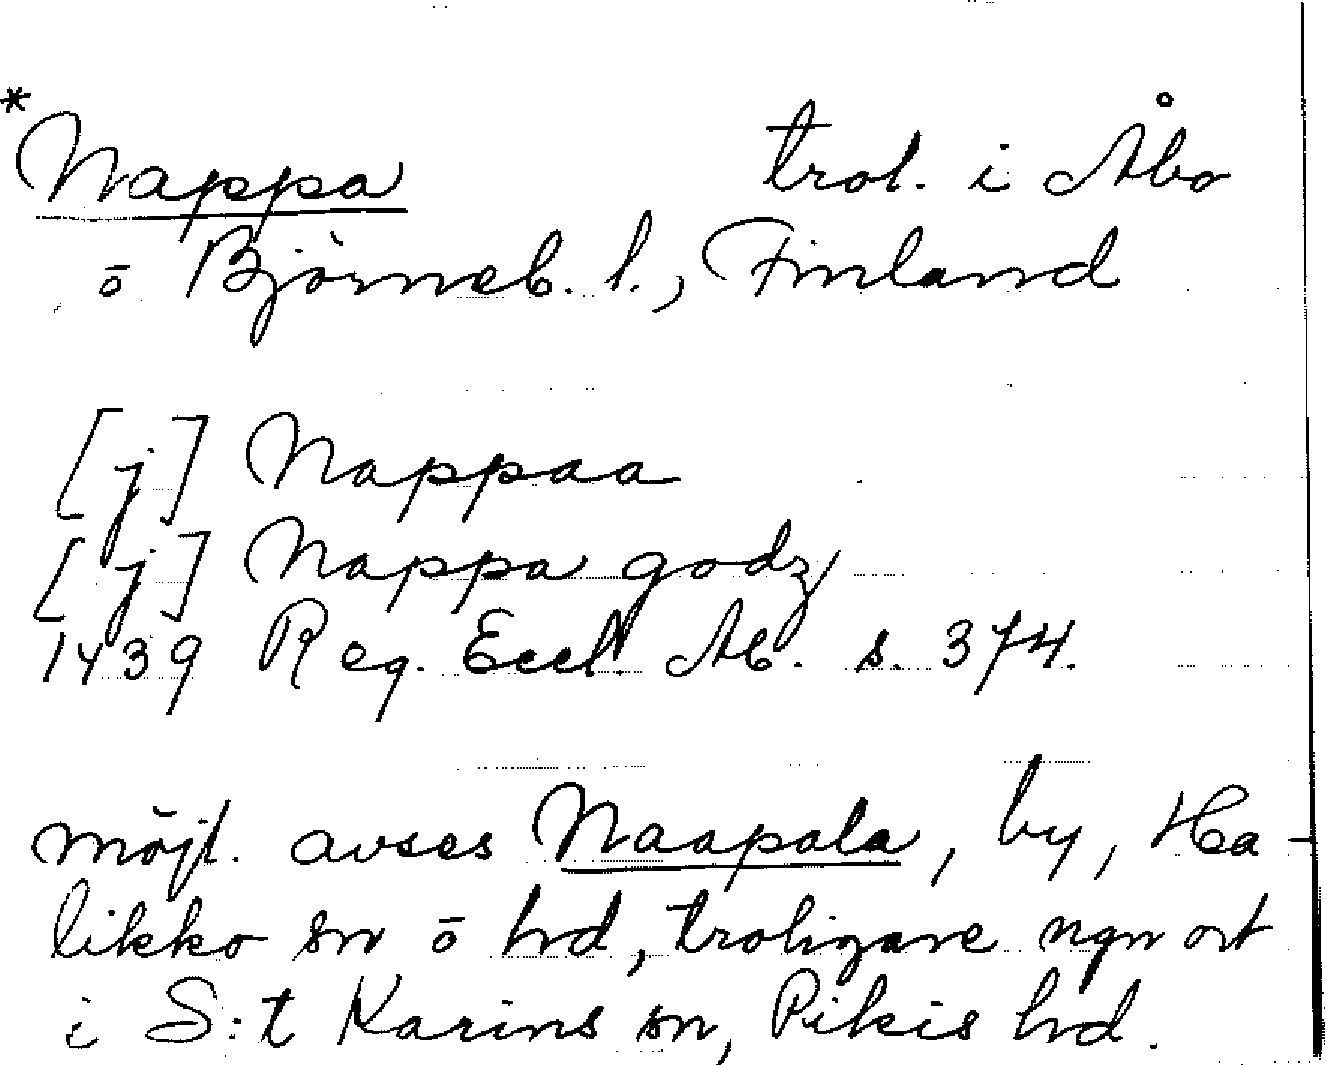 *Nappa trol. i Åbo
ō Björneb. l., Finland
[j] Nappaa
[j] Nappa godz
1439 Reg. Eccl. Ab. s. 374.
möjl. avses Naapala, by, Ha-
likko sn ō hd, troligare ngn ort
i S:t Karins sn, Pikis hd.